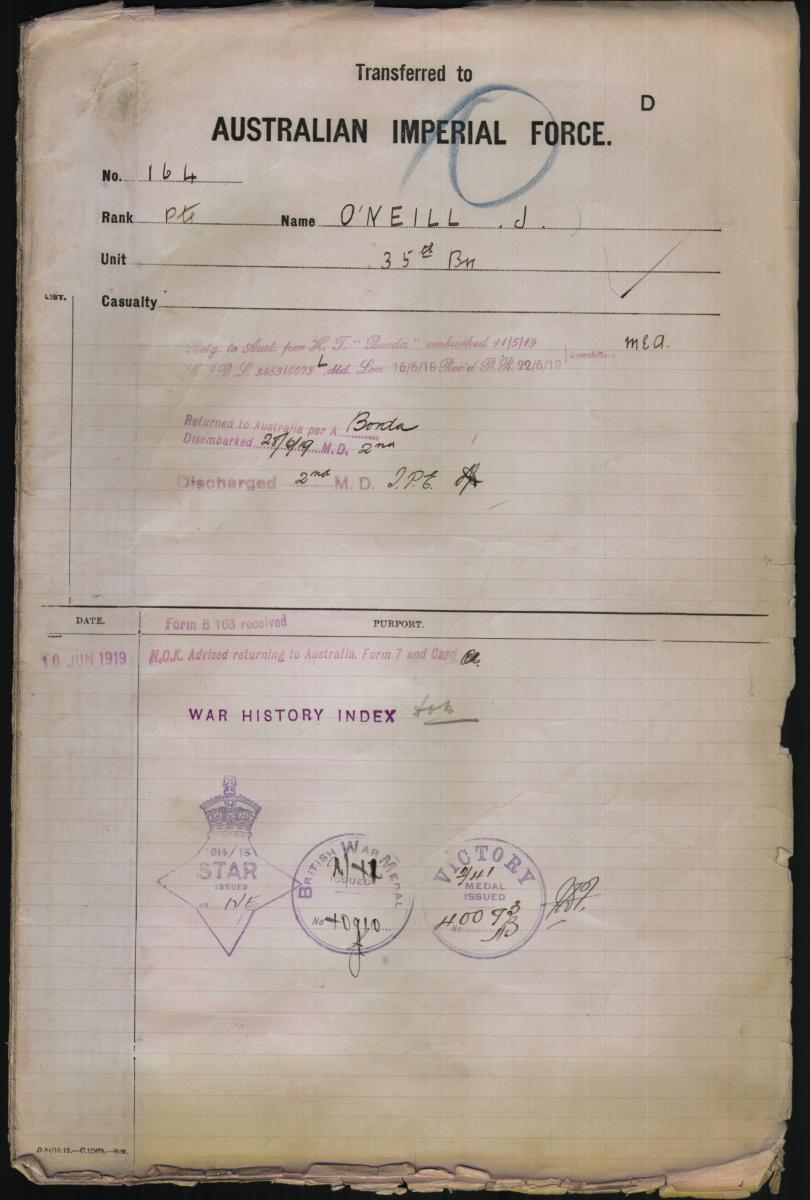 Transferred to
D
AUSTRALIAN IMPERIAL FORCE.
No. 164
Rank Pte Name O'NEILL . J.
Unit 35th Bn
LIST.
Casualty
Retg. to Aust. per H. T. "Borda" embarked 11/5/19
dtd. Lon. 15/5/19 Rec'd B.R. 22/5/19
Returned to Australia per A Borda
Disembarked M.D. 2nd
Discharged 2nd M. D.
DATE.
Form B 103 received
PURPORT.
10 JUN 1919
N.O.K. Advised returning to Australia. Form 7 and Card
WAR HISTORY INDEX
1914/15
STAR
ISSUED
No N/E
BRITISH WAR MEDAL
ISSUED
No
VICTORY
MEDAL
ISSUED
No.